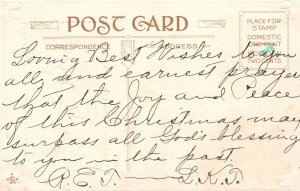 POST CARD
CORRESPONDENCE ADDRESS
PLACE FOR
STAMP
DOMESTIC
ONE CENT
TWO CENTS
Loving Best Wishes to you
all, and earnest prayer
that the Joy and Peace
of this Christmas may
surpass all God's blessing
to you in the past.
R.E.T. — L.K.T.